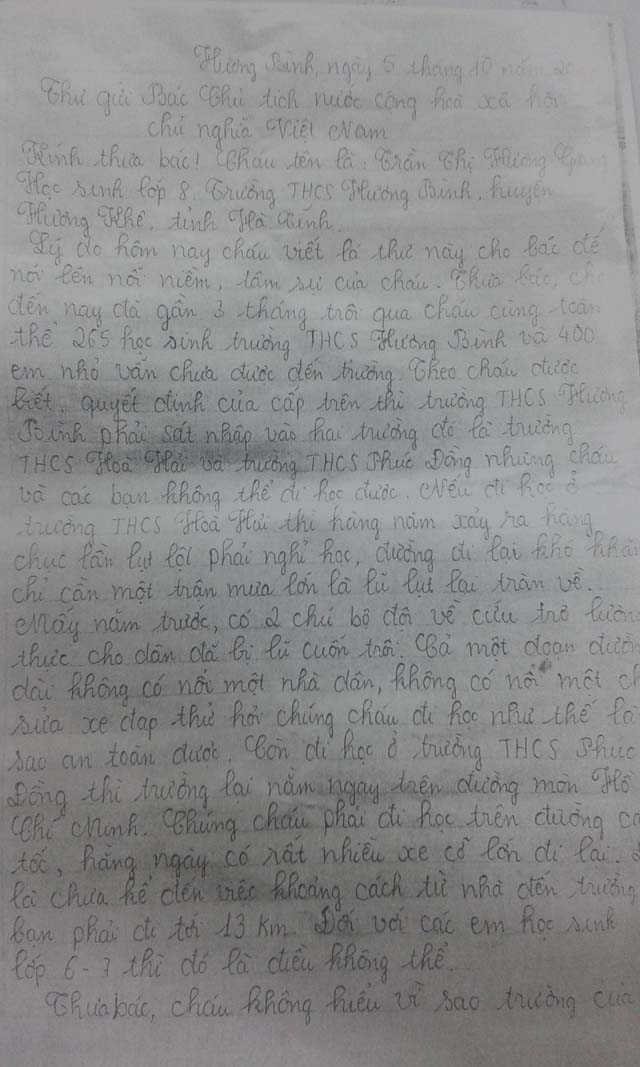 Hương Bình, ngày 5 tháng 10 năm 20
Thư gửi Bác Chủ tịch nước cộng hoà xã hội
chủ nghĩa Việt Nam
Kính thưa bác! Cháu tên là: Trần Thị Hương Giang
Học sinh lớp 8. Trường THCS Hương Bình, huyện
Hương Khê, tỉnh Hà Tĩnh.
Lý do hôm nay cháu viết lá thư này cho bác để
nói lên nỗi niềm, tâm sự của cháu. Thưa bác, cho
đến nay đã gần 3 tháng trôi qua cháu cùng toàn
thể 265 học sinh trường THCS Hương Bình và 400
em nhỏ vẫn chưa được đến trường. Theo cháu được
biết, quyết định của cấp trên thì trường THCS Hương
Bình phải sát nhập vào hai trường đó là trường
THCS Hoà Hải và trường THCS Phúc Đồng nhưng cháu
và các bạn không thể đi học được. Nếu đi học ở
trường THCS Hoà Hải thì hàng năm xảy ra hàng
chục lần lụt lội phải nghỉ học, đường đi lại khó khăn
chỉ cần một trận mưa lớn là lũ lụt lại tràn về.
Mấy năm trước, có 2 chú bộ đội về cứu trợ lương
thực cho dân đã bị lũ cuốn trôi. Cả một đoạn đường
dài không có nổi một nhà dân, không có nổi một ch
sửa xe đạp thử hỏi chúng cháu đi học như thế là
sao an toàn được. Còn đi học ở trường THCS Phúc
Đồng thì trường lại nằm ngay trên đường mòn Hồ
Chí Minh. Chúng cháu phải đi học trên đường ca
tốc, hằng ngày có rất nhiều xe cỡ lớn đi lại.
là chưa kể đến việc khoảng cách từ nhà đến trường
bạn phải đi tới 13 km. Đối với các em học sinh
lớp 6 - 7 thì đó là điều không thể.
Thưa bác, cháu không hiểu vì sao trường của